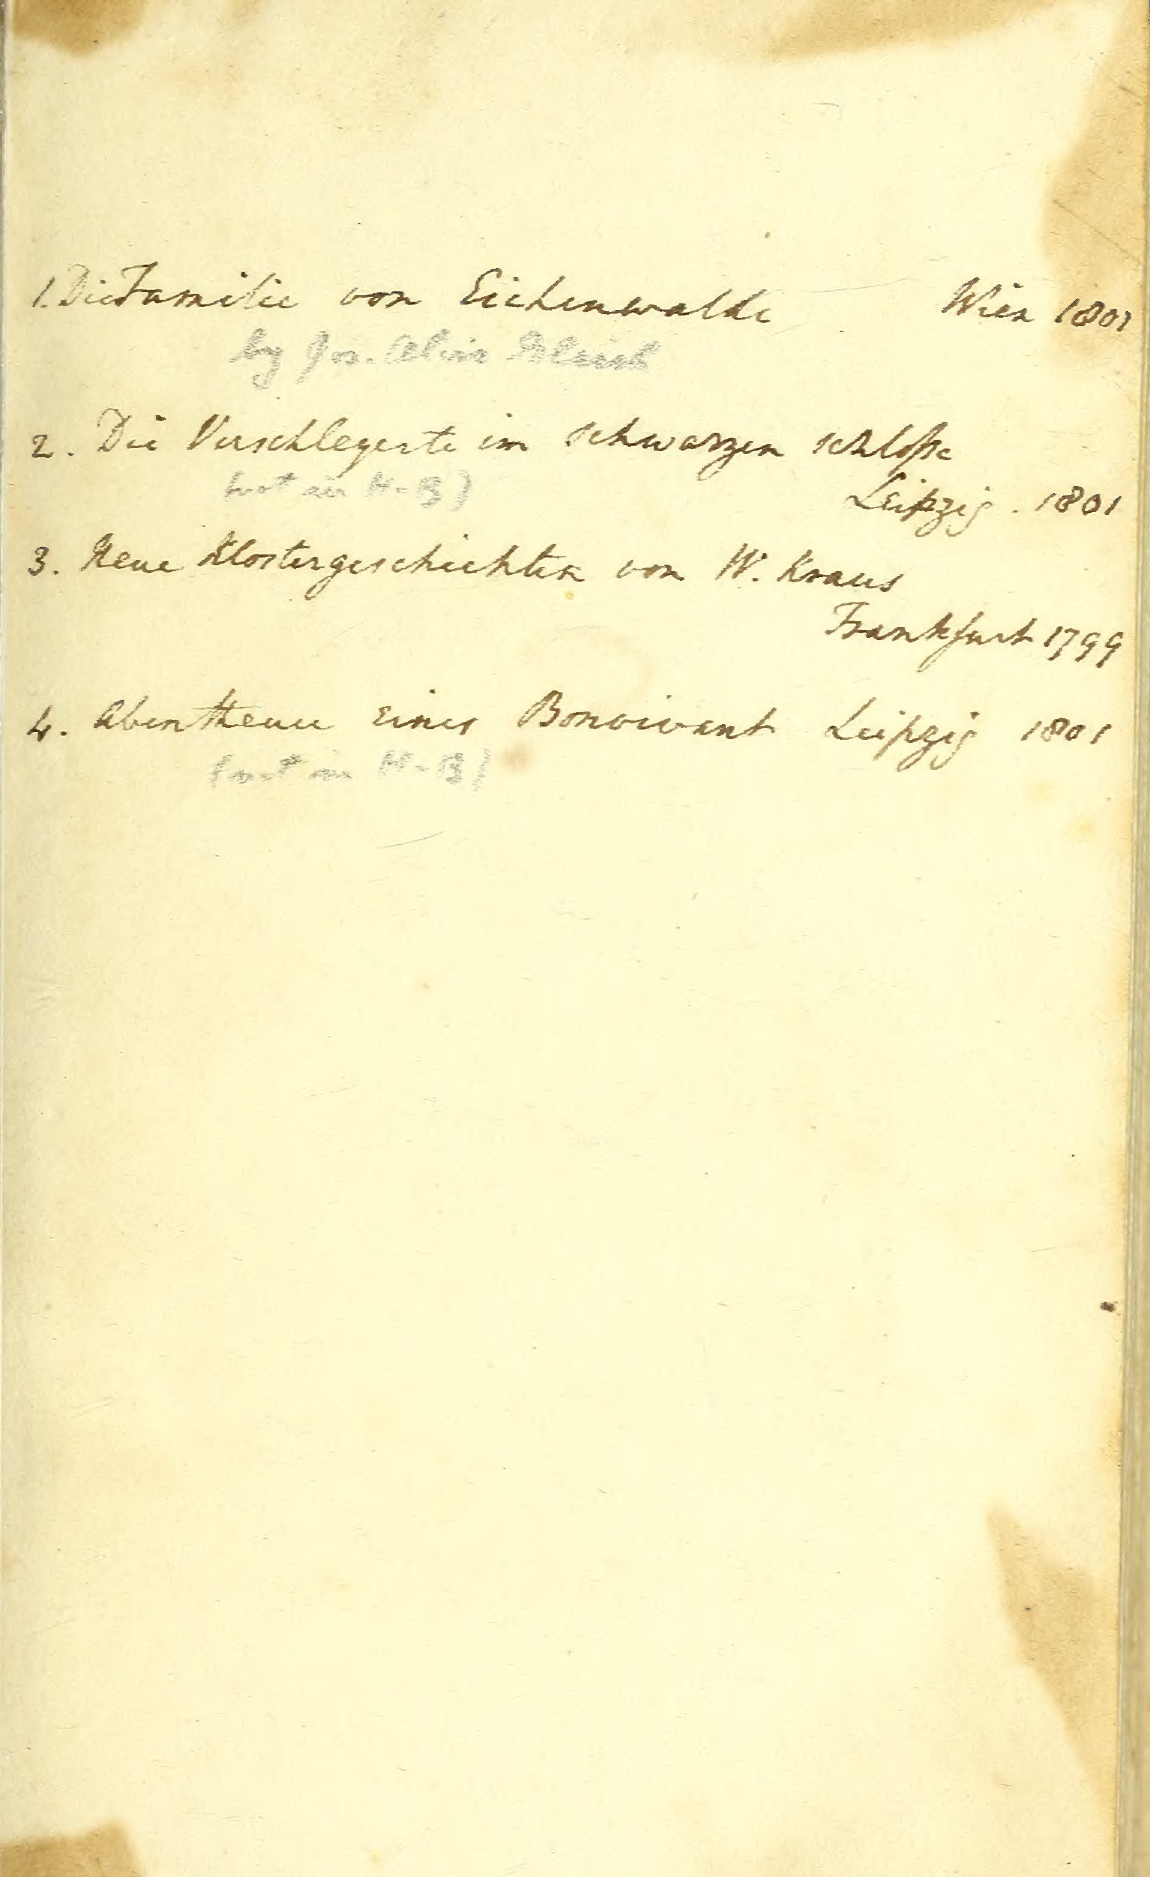 1. Die Familie von Eichenwalde Wien 1801
by Jos. Alois Gleich
2. Die Verschlegerte im schwarzen schloße
(not in H-B)
Leipzig. 1801
3. Neue Klostergeschichten von W. Kraus
Frankfurt 1799
4. Abentheuer eines Bonvivant Leipzig 1801
(not in H-B)